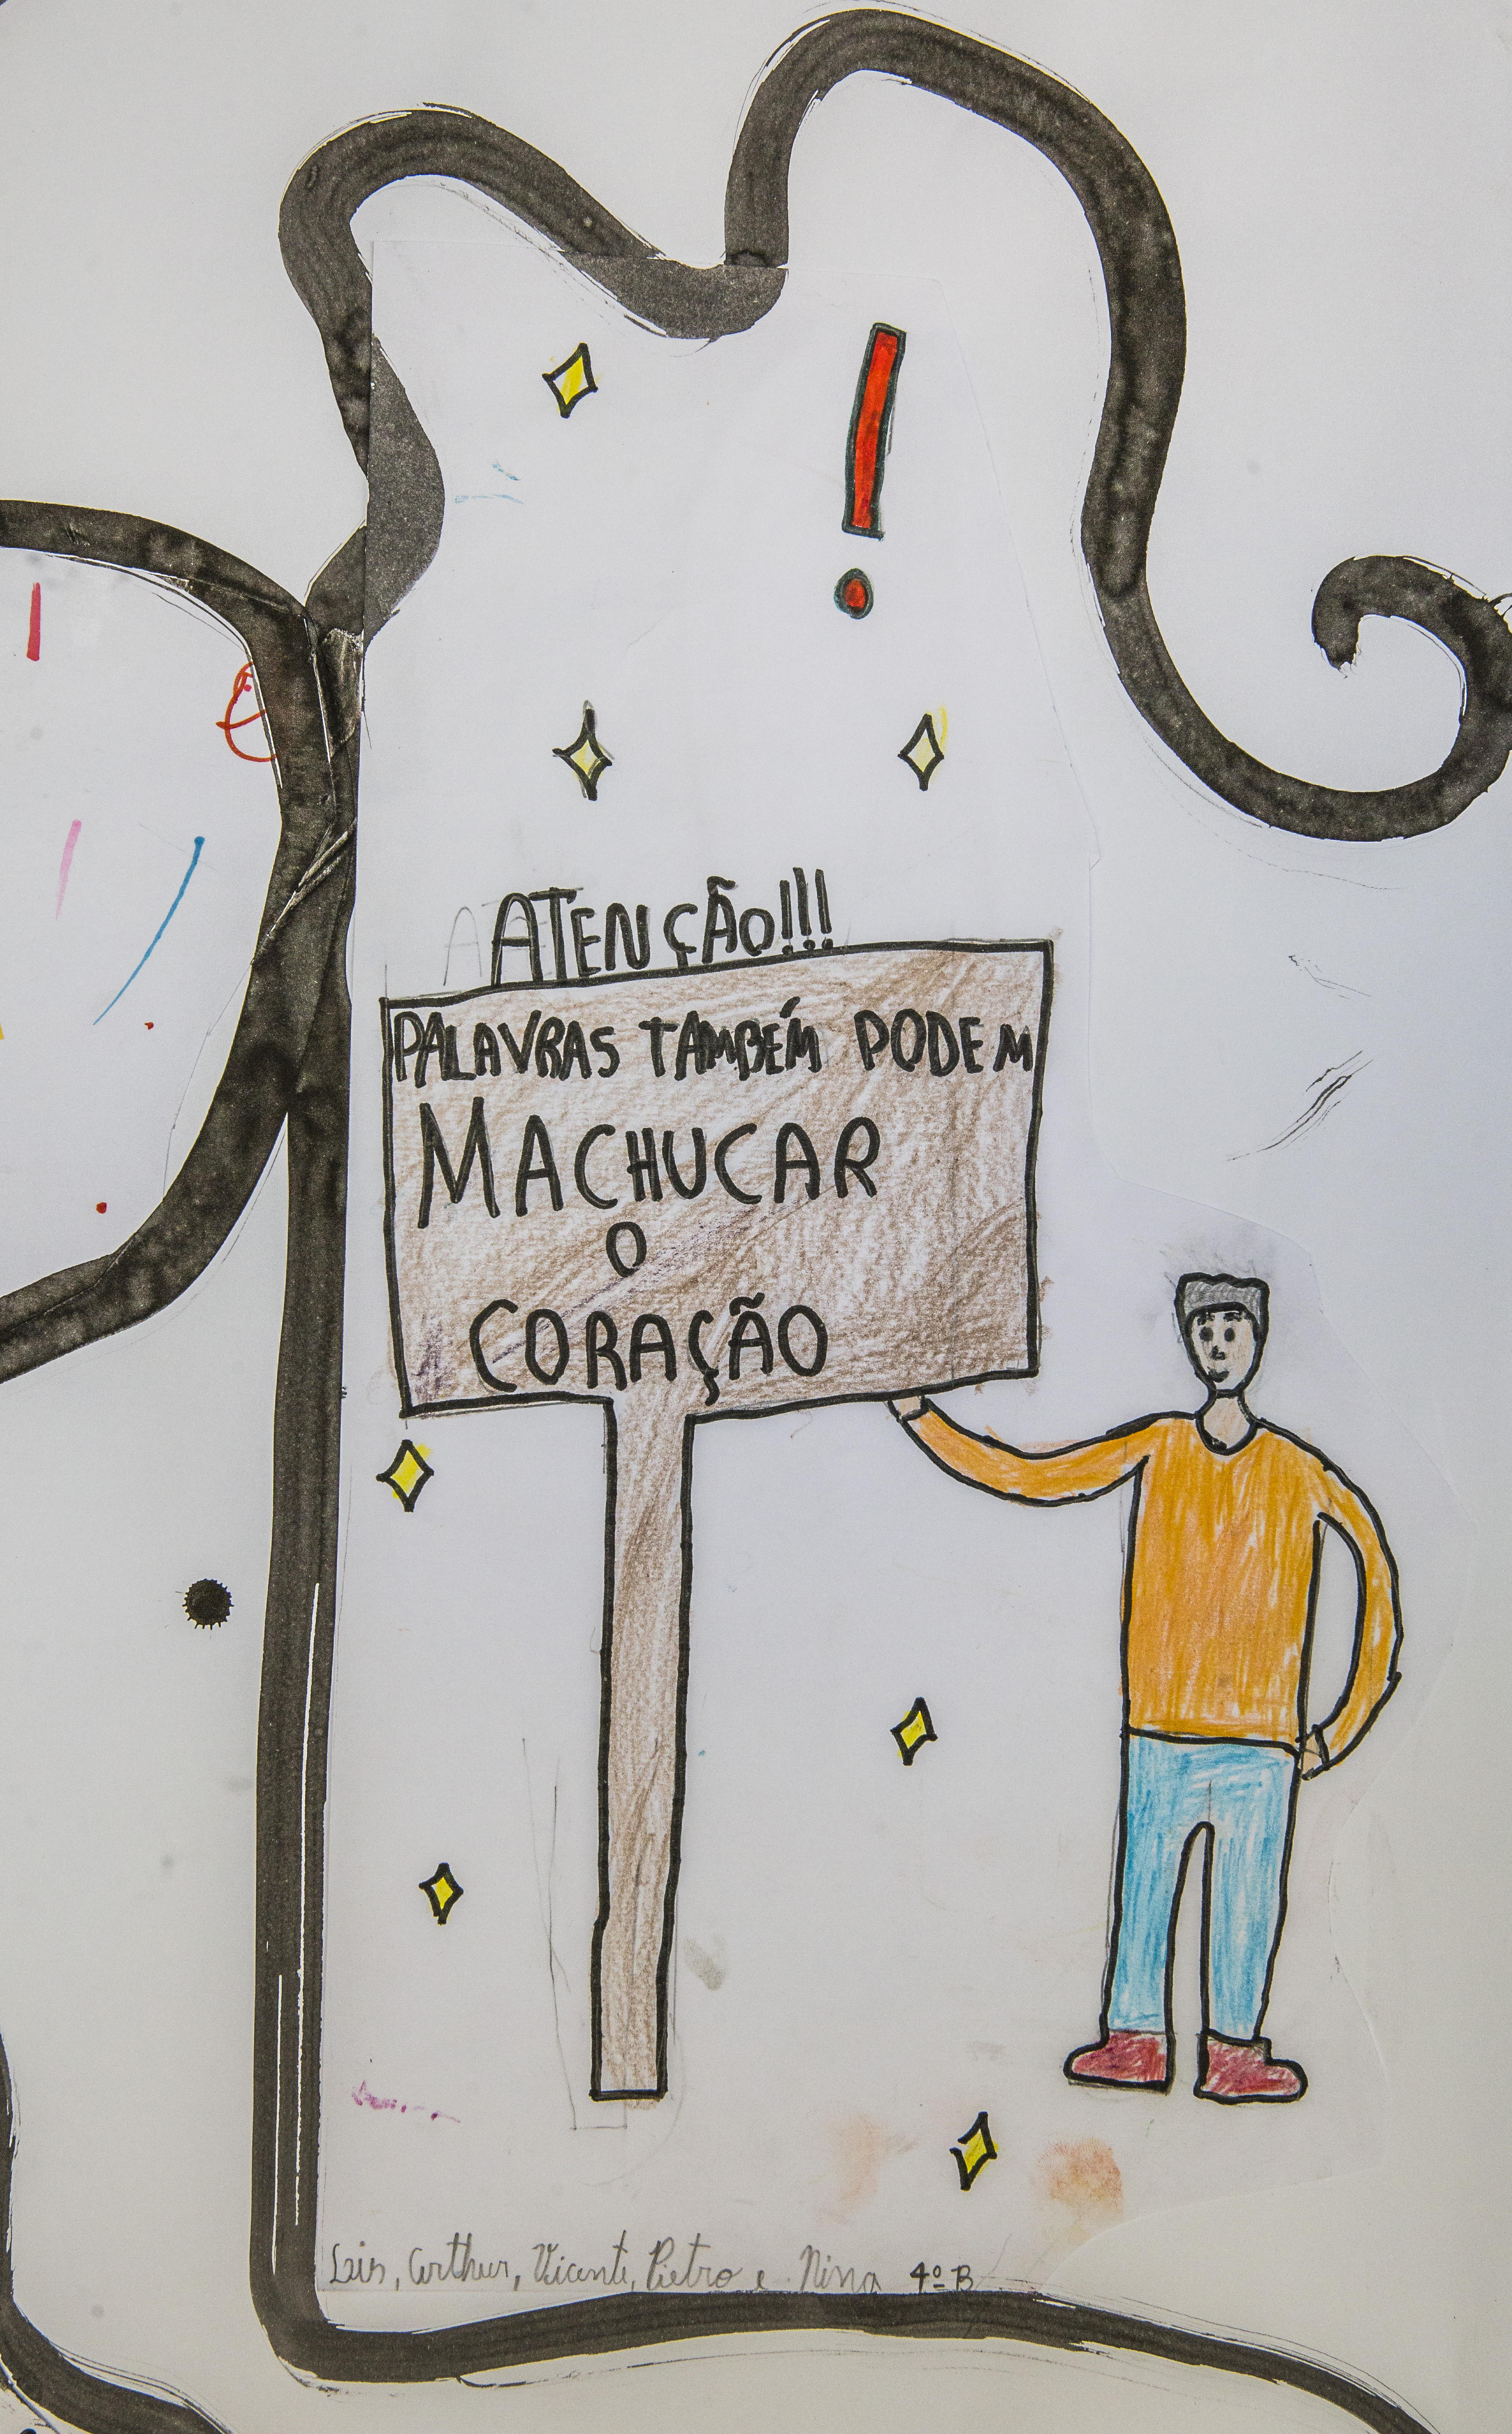 !
ATENÇÃO!!!
PALAVRAS TAMBÉM PODEM
MACHUCAR
O
CORAÇÃO
Arthur, Vicente, Pietro e Nina 4º B